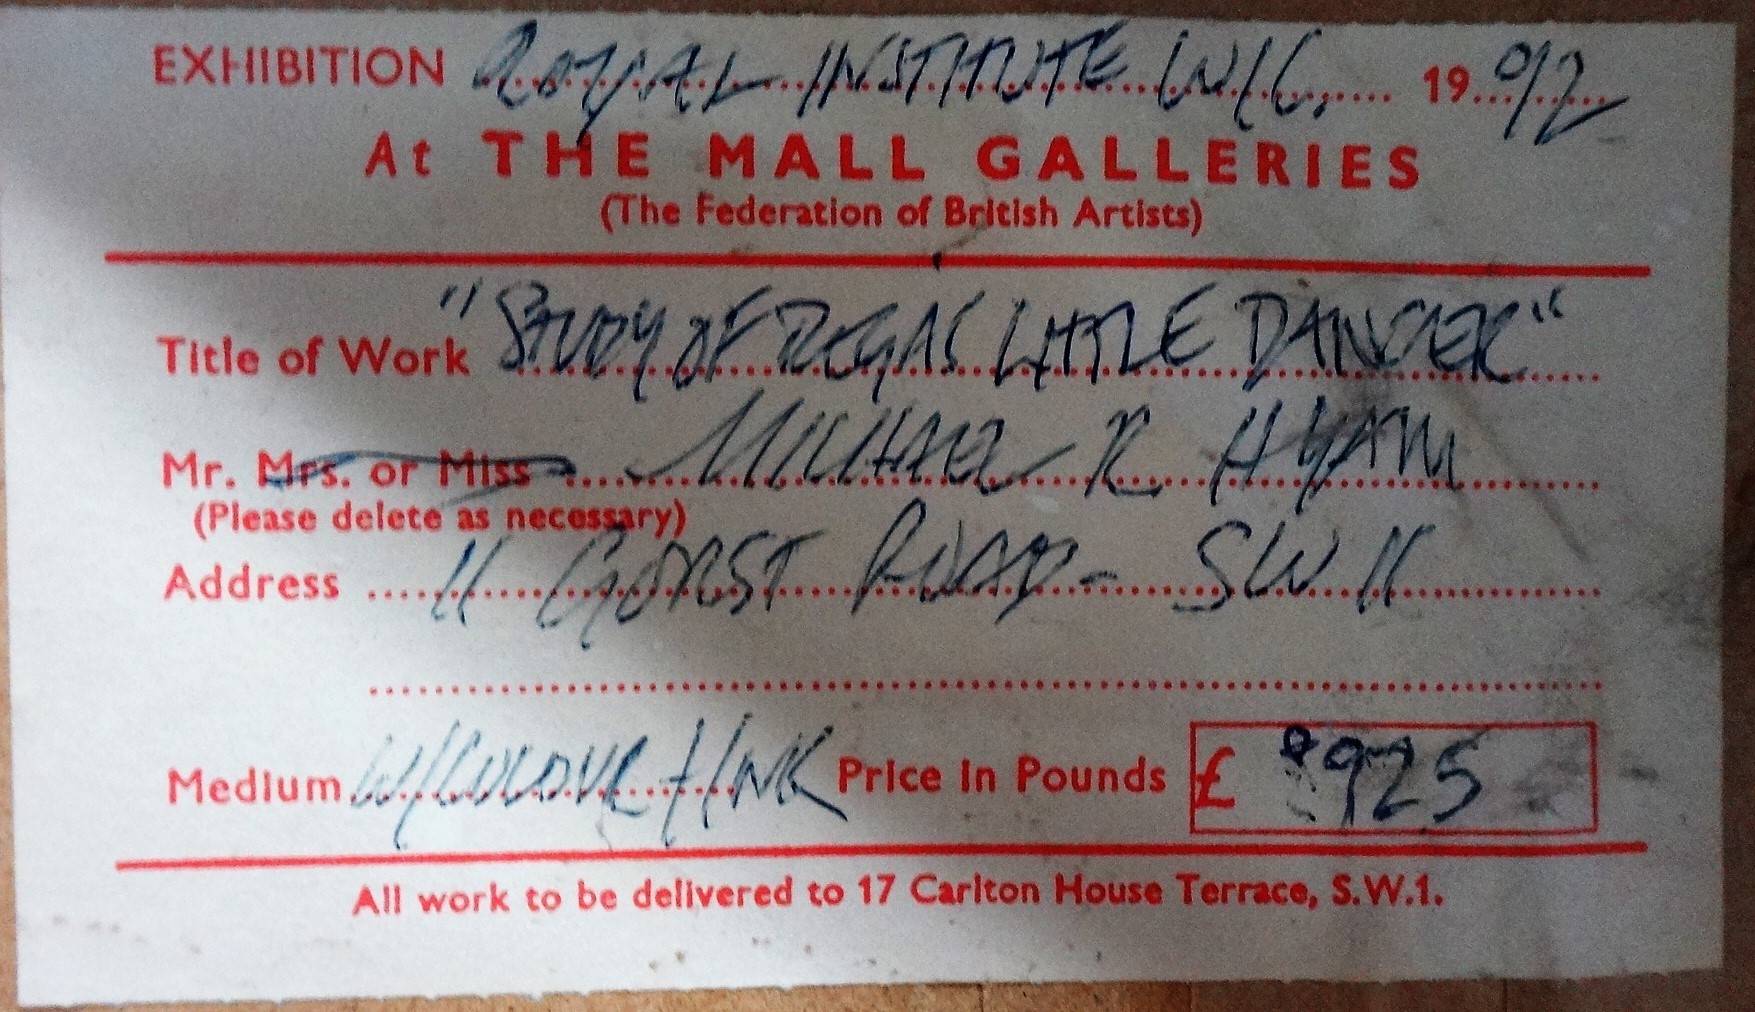 EXHIBITION ROYAL INSTITUTE W/C. 1992
At THE MALL GALLERIES
(The Federation of British Artists)
Title of Work "STUDY OF DEGAS LITTLE DANCER"
Mr. Mrs. or Miss MICHAEL R HYAM
(Please delete as necessary)
Address 11 GORST ROAD - SW 11
Medium W/COLOUR + INK Price in Pounds £ 925
All work to be delivered to 17 Carlton House Terrace, S.W.1.